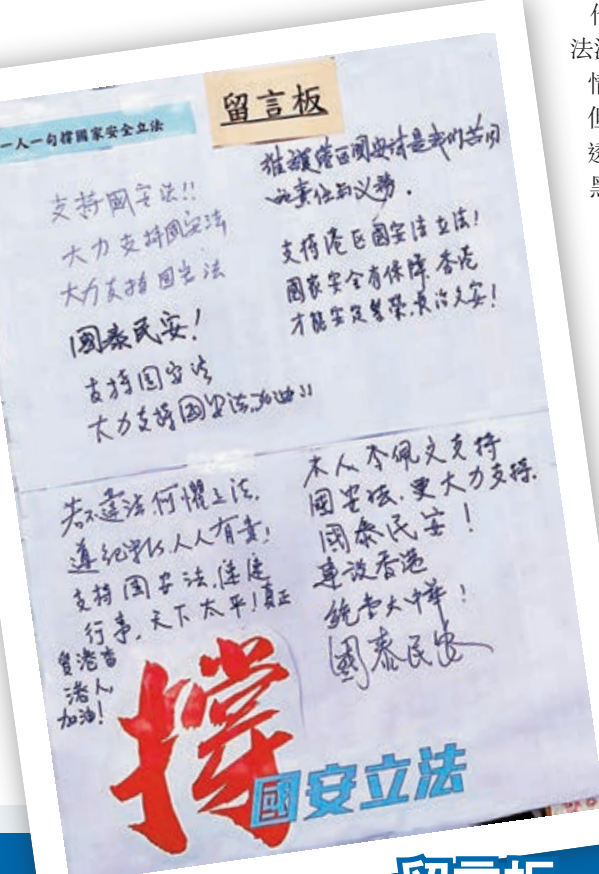 留言板
一人一句撐國家安全立法
支持國安法!!
大力支持国安法
大力支持国安法
國泰民安!
支持国安法
大力支持国安法,加油!!
維護港區國安法是我们共同
的責任与义務.
支持港区國安法立法!
國家安全有保障.香港
才能安定繁榮.長治久安!
若不違法何懼立法.
遵纪守法人人有責!
支持国安法,速速
行事,天下太平!真正
愛港古
港人,
加油!
本人李佩文支持
國安法.更大力支持.
国泰民安!
建设香港
統壱大中華!
國泰民安
撐
國安立法
法
情
但
透
留言板